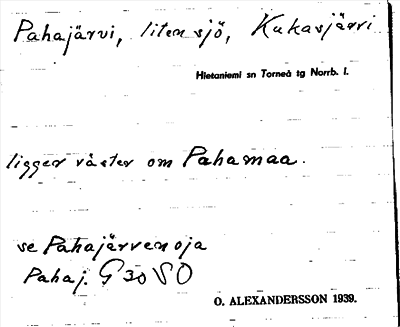 Pahajärvi, liten sjö, Kukasjärvi
Hietaniemi sn Torneå tg Norrb. l.
ligger väster om Pahamaa.
se Pahajärvenoja
Pahaj. G 30 SO
O. ALEXANDERSSON 1939.